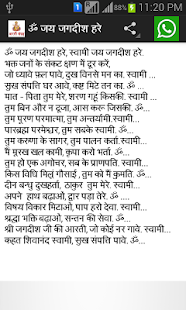 11:20 PM
ॐ जय जगदीश हरे
ॐ जय जगदीश हरे, स्वामी जय जगदीश हरे.
भक्त जनों के संकट क्षण में दूर करें,
जो ध्यावे फल पावे, दुख विनसे मन का. स्वामी ...
सुख संपत्ति घर आवे, कष्ट मिटे तन का. ॐ ...
मात - पिता तुम मेरे, शरण गहूं किसकी. स्वामी ...
तुम बिन और न दूजा, आस करूं जिसकी. ॐ...
तुम पूरण परमात्मा, तुम अन्तर्यामी. स्वामी...
पारब्रह्म परमेश्वर, तुम सबके स्वामी. ॐ...
तुम करुणा के सागर, तुम पालन कर्ता.स्वामी...
मैं मूरख खल कामी, कृपा करो भर्ता. ॐ...
तुम हो एक अगोचर, सब के प्राणपति. स्वामी...
किस विधि मिलूं गौसाईं , तुम को मैं कुमति. ॐ...
दीन बन्धु दुखहर्ता, ठाकुर तुम मेरे. स्वामी...
अपने हाथ बढ़ाओ, द्वार पड़ा तेरे. ॐ...
विषय विकार मिटाओ, पाप हरो देवा. स्वामी...
श्रद्धा भक्ति बढ़ाओ, सन्तन की सेवा. ॐ...
श्री जगदीश जी की आरती, जो कोई नर गावे. स्वामी...
कहत शिवानंद स्वामी, सुख संपत्ति पावे. ॐ...